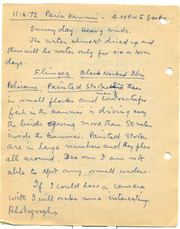 11-6-72 Peria Kanmai - 4.30PM to 5.00PM
Sunny day. Heavy winds.
The water almost dried up and
there will be water only for six or seven
days.
Flamingo, Black Necked Ibis
Pelicans, Painted Storks
in small flocks and contractor for
fish in the Kanmai is driving away
the birds opening more than 50 meters
inside the Kanmai. Painted Storks
are in large numbers and they flew
all around. One can I am not
able to spot any small waders.
If I could have a camera
with I will make some interesting
Photographs